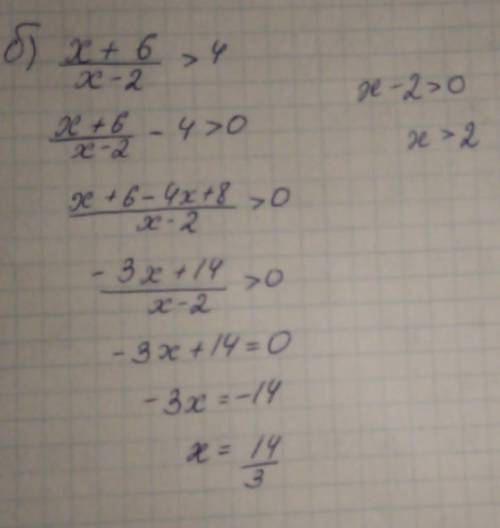 б) x + 6 / x - 2 > 4
x - 2 > 0
x > 2
x + 6 / x - 2 - 4 > 0
x + 6 - 4x + 8 / x - 2 > 0
- 3x + 14 / x - 2 > 0
- 3x + 14 = 0
- 3x = - 14
x = 14 / 3